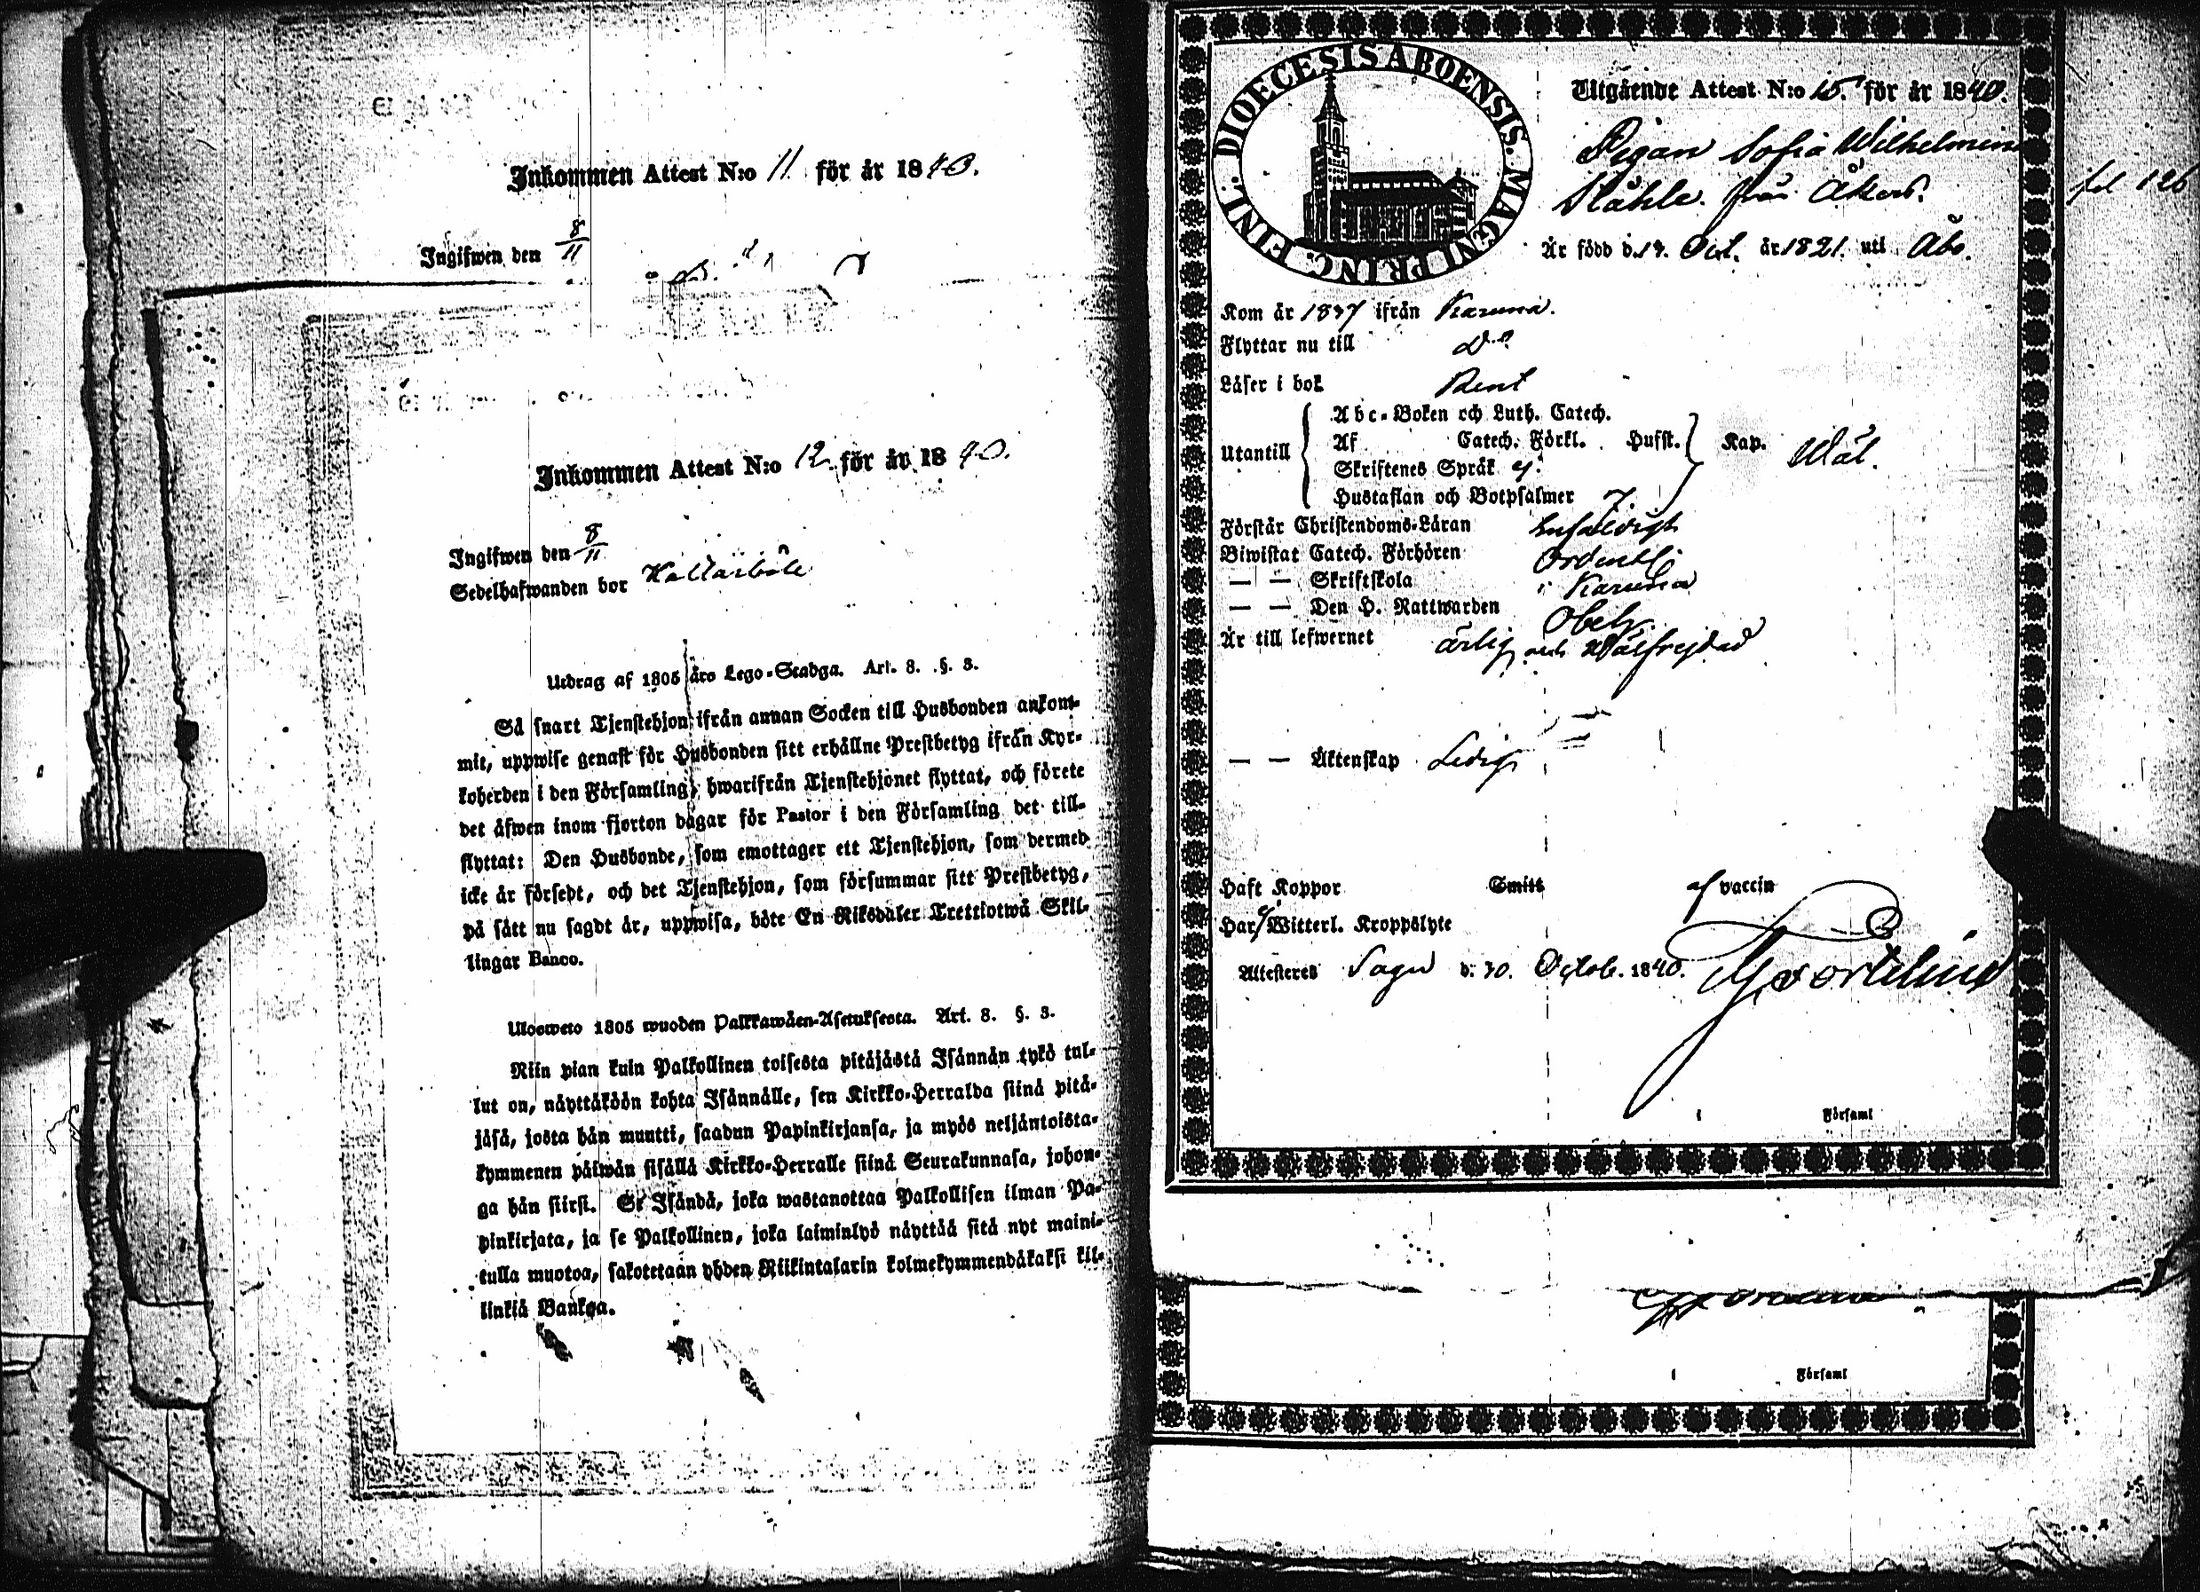 Inkommen Attest N:o 11 för år 1840.
Ingifwen den 8/11
Inkommen Attest N:o 12 för år 1840.
Ingifwen den 8/11
Sedelhafwanden bor
Utdrag af 1805 års Lego-Stadga. Art. 8. §. 3.
Så snart Tjenstehjon ifrån annan Socken till Husbonden ankom-
mit, uppwise genast för Husbonden sitt erhållne Prestbetyg ifrån Kyr-
koherden i den Församling, hwarifrån Tjenstehjonet flyttat, och förete
det äfwen inom fjorton dagar för Pastor i den Församling det till-
flyttat: Den Husbonde, som emottager ett Tjenstehjon, som dermed
icke är försedt, och det Tjenstehjon, som försummar sitt Prestbetyg,
på sätt nu sagdt är, uppwisa, böte En Riksdaler Trettiotwå Skil-
lingar Banco.
Ulosweto 1805 wuoden Palkkawäen-Asetuksesta. Art. 8. §. 3.
Niin pian kuin Palkollinen toisesta pitäjästä Isännän tykö tul-
lut on, näyttäköön kohta Isännälle, sen Kirkko-Herralda siinä pitä-
jäsä, josta hän muutti, saadun Papinkirjansa, ja myös neljäntoista-
kymmenen päiwän sisällä Kirkko-Herralle siinä Seurakunnasa, johon-
ga hän siirsi. Se Isändä, joka wastanottaa Palkollisen ilman Pa-
pinkirjata, ja se Palkollinen, joka laiminlyö näyttää sitä nyt maini-
tulla muotoa, sakotetaan yhden Riikintalarin kolmekymmendäkaksi kil-
linkiä Bankoa.
DIOECESIS ABOENSIS. MAGNI PRINC. FINL:
Utgående Attest N:o 15. för år 1840.
Pigan Sofia Wilhelmin
Ståhle. från Åkers.
fol 126
Är född d. 19. Oct. år 1821. uti Åbo.
Kom år 1837 ifrån Karuna.
Flyttar nu till Do
Läser i bok Rent
Utantill
Abc-Boken och Luth. Catech.
Af Catech. Förkl. Husst. Kap. Wäl.
Skriftenes Språk
Hustaflan och Botpsalmer 7
Förstår Christendoms-Läran
Biwistat Catech. Förhören
— — Skriftskola i Karuna
— — Den H. Nattwarden
Är till lefwernet ärlig och wälfrejdad
— — Äktenskap Ledig
Haft Koppor Smitt af vaccin
Har Witterl. Kroppslyte
Attesteres Sagu d. 30. Octob. 1840.
i Församl
i Församl